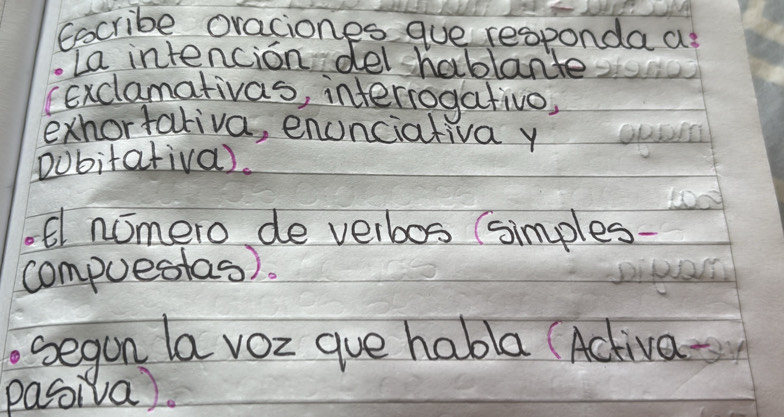 Escribe oraciones que responda a:
• La intención del hablante
(exclamativas, interrogativo,
exhortativa, enunciativa y
Dubitativa).
• El número de verbos (simples-
compuestas).
• segun la voz que habla (Activa-
pasiva).